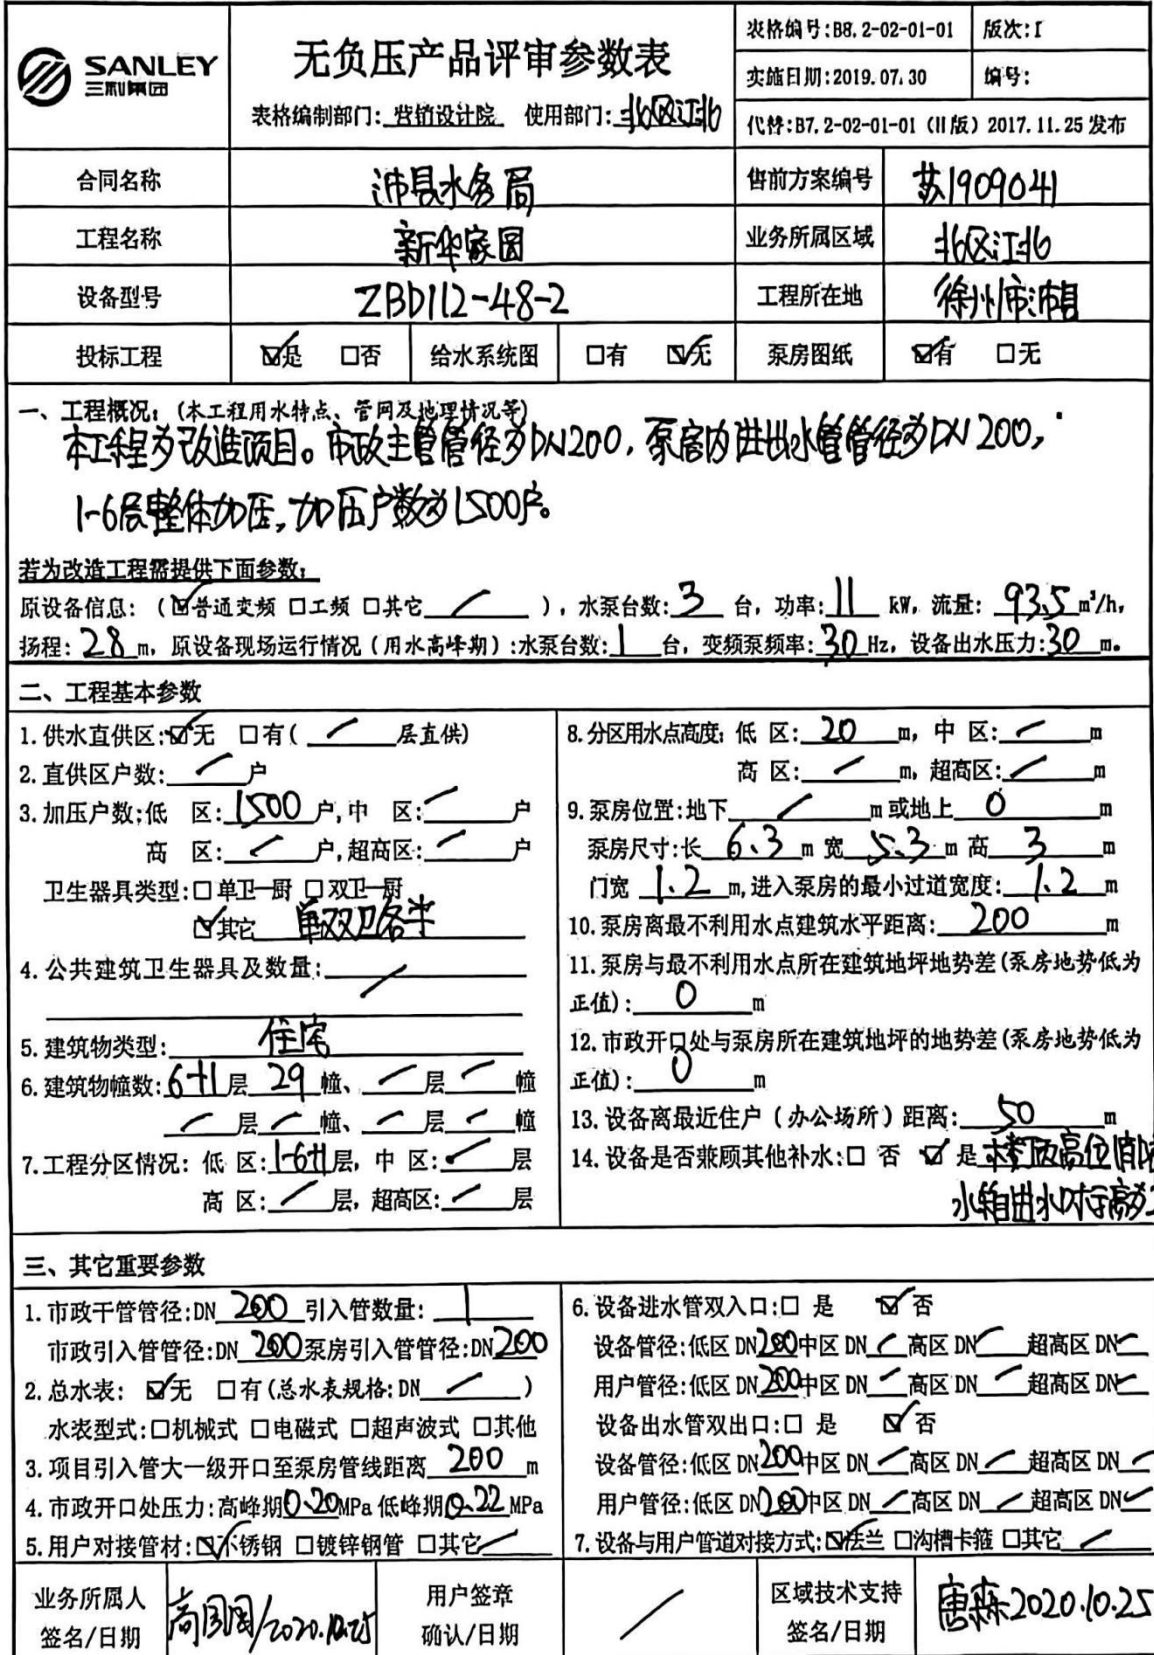 SANLEY
三利集团
无负压产品评审参数表
表格编制部门:营销设计院 使用部门:北区江北
表格编号:B8.2-02-01-01 版次:I
实施日期:2019.07.30 编号:
代替:B7.2-02-01-01（II版）2017.11.25发布
合同名称 沛县水务局 售前方案编号 苏1909041
工程名称 新华家园 业务所属区域 北区江北
设备型号 ZBD112-48-2 工程所在地 徐州市沛县
投标工程 ☑是 □否 给水系统图 □有 ☑无 泵房图纸 ☑有 □无
一、工程概况：(本工程用水特点、管网及地理情况等)
本工程为改造项目。市政主管管径为DN200，泵房内进出水管管径为DN200，
1-6层整体加压，加压户数为1500户。
若为改造工程需提供下面参数：
原设备信息：（☑普通变频 □工频 □其它 / ），水泵台数:3 台，功率:11 kW，流量：93.5 m³/h，
扬程：28 m，原设备现场运行情况（用水高峰期）:水泵台数:1 台，变频泵频率:30 Hz，设备出水压力:30 m。
二、工程基本参数
1.供水直供区:☑无 □有( / 层直供)
2.直供区户数: / 户
3.加压户数;低 区:1500 户,中 区: / 户
高 区: / 户,超高区: / 户
卫生器具类型:□单卫一厨 □双卫一厨
☑其它 单双卫各半
4.公共建筑卫生器具及数量: /
5.建筑物类型: 住宅
6.建筑物幢数:6+1层 29 幢、 / 层 / 幢
/ 层 / 幢、 / 层 / 幢
7.工程分区情况: 低 区:1-6+1层，中 区: / 层
高 区: / 层，超高区: / 层
8.分区用水点高度: 低 区: 20 m，中 区: / m
高 区: / m，超高区: / m
9.泵房位置:地下 / m或地上 0 m
泵房尺寸:长 6.3 m 宽 5.3 m 高 3 m
门宽 1.2 m,进入泵房的最小过道宽度: 1.2 m
10.泵房离最不利用水点建筑水平距离: 200 m
11.泵房与最不利用水点所在建筑地坪地势差(泵房地势低为
正值): 0 m
12.市政开口处与泵房所在建筑地坪的地势差(泵房地势低为
正值): 0 m
13.设备离最近住户（办公场所）距离: 50 m
14.设备是否兼顾其他补水:□ 否 ☑ 是 高位消
水箱进水口
三、其它重要参数
1.市政干管管径:DN 200 引入管数量: 1
市政引入管管径:DN 200 泵房引入管管径:DN200
2.总水表: ☑无 □有(总水表规格:DN / )
水表型式:□机械式 □电磁式 □超声波式 □其他
3.项目引入管大一级开口至泵房管线距离 200 m
4.市政开口处压力:高峰期0.20MPa 低峰期0.22 MPa
5.用户对接管材:☑不锈钢 □镀锌钢管 □其它 /
6.设备进水管双入口:□ 是 ☑ 否
设备管径:低区 DN200中区 DN / 高区 DN / 超高区 DN /
用户管径:低区 DN200中区 DN / 高区 DN / 超高区 DN /
设备出水管双出口:□ 是 ☑ 否
设备管径:低区 DN200中区 DN / 高区 DN / 超高区 DN /
用户管径:低区 DN200中区 DN / 高区 DN / 超高区 DN /
7.设备与用户管道对接方式:☑法兰 □沟槽卡箍 □其它 /
业务所属人
签名/日期
2020.10.25
用户签章
确认/日期
/
区域技术支持
签名/日期
唐森2020.10.25